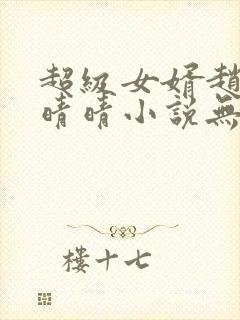 超級女婿趙
晴晴小說無
樓十七